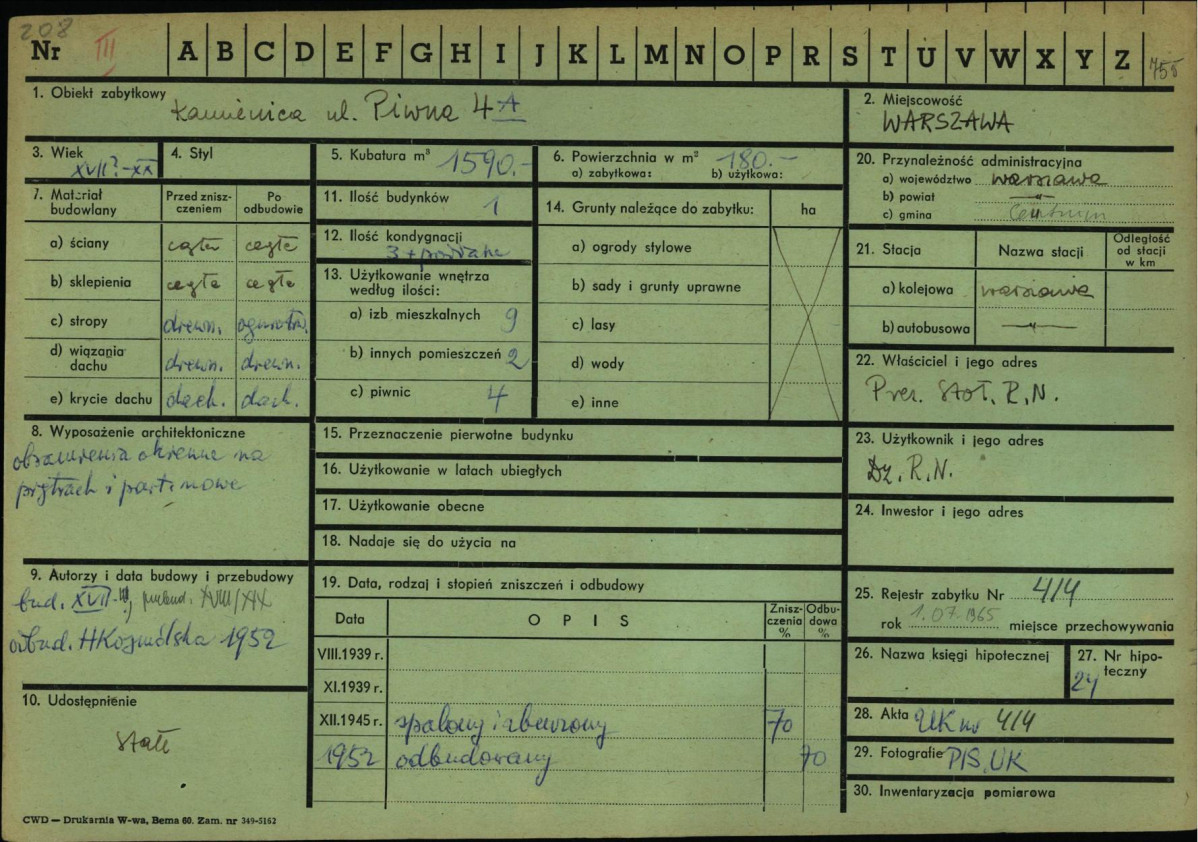 208
Nr III A B C D E F G H I J K L M N O P R S T U V W X Y Z 755
1. Obiekt zabytkowy Kamienica ul. Piwna 4 A
2. Miejscowość
WARSZAWA
3. Wiek
XVII?-XX
4. Styl
5. Kubatura m³ 1590.-
6. Powierzchnia w m² 180.-
a) zabytkowa: b) użytkowa:
20. Przynależność administracyjna
a) województwo warszawa
b) powiat —"—
c) gmina Centrum
7. Materiał budowlany
Przed zniszczeniem
Po odbudowie
a) ściany cegła cegła
b) sklepienia cegła cegła
c) stropy drewn. ogniotrw.
d) wiązania dachu drewn. drewn.
e) krycie dachu dach. dach.
11. Ilość budynków 1
12. Ilość kondygnacji
3 + poddasze
13. Użytkowanie wnętrza według ilości:
a) izb mieszkalnych 9
b) innych pomieszczeń 2
c) piwnic 4
14. Grunty należące do zabytku: ha
a) ogrody stylowe
b) sady i grunty uprawne
c) lasy
d) wody
e) inne
21. Stacja Nazwa stacji Odległość od stacji w km
a) kolejowa warszawa
b) autobusowa —"—
22. Właściciel i jego adres
Prez. Stoł. R.N.
8. Wyposażenie architektoniczne
obramienia okienne na
piętrach i parterowe
15. Przeznaczenie pierwotne budynku
16. Użytkowanie w latach ubiegłych
17. Użytkowanie obecne
18. Nadaje się do użycia na
23. Użytkownik i jego adres
Dz. R.N.
24. Inwestor i jego adres
9. Autorzy i data budowy i przebudowy
bud. XVII-?, przebud. XVIII/XIX
odbud. H Kozmólska 1952
10. Udostępnienie
Stałe
19. Data, rodzaj i stopień zniszczeń i odbudowy
Data OPIS Zniszczenia % Odbudowa %
VIII.1939 r.
XI.1939 r.
XII.1945 r. spalony i zburzony 70
1952 odbudowany 70
25. Rejestr zabytku Nr 414
rok 1.07.1965 miejsce przechowywania
26. Nazwa księgi hipotecznej
27. Nr hipoteczny
24
28. Akta UK nr 414
29. Fotografie PIS, UK
30. Inwentaryzacja pomiarowa
CWD — Drukarnia W-wa, Bema 60. Zam. nr 349-5162